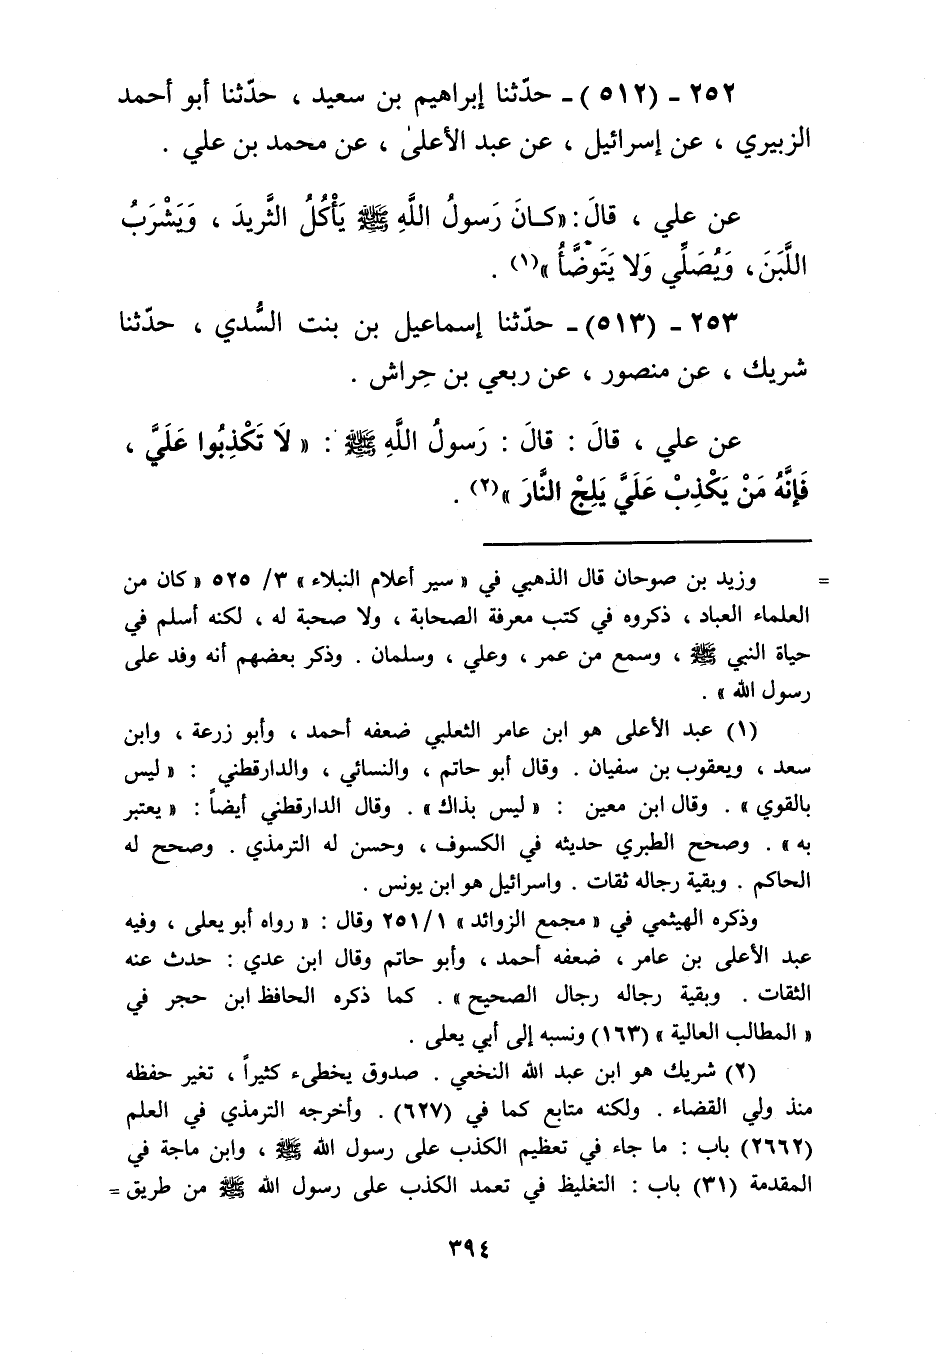 ٢٥٢ ـ (٥١٢) ـ حدّثنا إبراهيم بن سعيد ، حدّثنا أبو أحمد
الزبيري ، عن إسرائيل ، عن عبد الأعلىٰ ، عن محمد بن علي .
عن علي ، قالَ : « كـانَ رَسولُ اللَّهِ ﷺ يَأْكُلُ الثَّريدَ ، وَيَشْرَبُ
اللَّبَنَ ، وَيُصَلِّي وَلا يَتَوضَّأُ »(١) .
٢٥٣ ـ (٥١٣) ـ حدّثنا إسماعيل بن بنت السُّدي ، حدّثنا
شريك ، عن منصور ، عن ربعي بن حِراش .
عن علي ، قالَ : قالَ : رَسولُ اللَّهِ ﷺ : « لَا تَكْذِبُوا عَلَيَّ ،
فَإِنَّهُ مَنْ يَكْذِبْ عَلَيَّ يَلِجْ النَّارَ »(٢) .
= وزيد بن صوحان قال الذهبي في « سير أعلام النبلاء » ٣/ ٥٢٥ « كان من
العلماء العباد ، ذكروه في كتب معرفة الصحابة ، ولا صحبة له ، لكنه أسلم في
حياة النبي ﷺ ، وسمع من عمر ، وعلي ، وسلمان . وذكر بعضهم أنه وفد على
رسول الله » .
(١) عبد الأعلى هو ابن عامر الثعلبي ضعفه أحمد ، وأبو زرعة ، وابن
سعد ، ويعقوب بن سفيان . وقال أبو حاتم ، والنسائي ، والدارقطني : « ليس
بالقوي » . وقال ابن معين : « ليس بذاك » . وقال الدارقطني أيضاً : « يعتبر
به » . وصحح الطبري حديثه في الكسوف ، وحسن له الترمذي . وصحح له
الحاكم . وبقية رجاله ثقات . واسرائيل هو ابن يونس .
وذكره الهيثمي في « مجمع الزوائد » ٢٥١/١ وقال : « رواه أبو يعلى ، وفيه
عبد الأعلى بن عامر ، ضعفه أحمد ، وأبو حاتم وقال ابن عدي : حدث عنه
الثقات . وبقية رجاله رجال الصحيح » . كما ذكره الحافظ ابن حجر في
« المطالب العالية » (١٦٣) ونسبه إلى أبي يعلى .
(٢) شريك هو ابن عبد الله النخعي . صدوق يخطىء كثيراً ، تغير حفظه
منذ ولي القضاء . ولكنه متابع كما في (٦٢٧) . وأخرجه الترمذي في العلم
(٢٦٦٢) باب : ما جاء في تعظيم الكذب على رسول الله ﷺ ، وابن ماجة في
المقدمة (٣١) باب : التغليظ في تعمد الكذب على رسول الله ﷺ من طريق =
٣٩٤